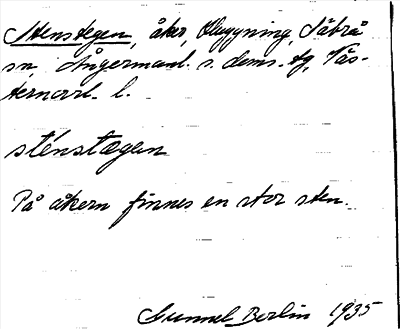 Stenstegen, åker, Utuggning, Säbrå
sn, Ångermanl. s. doms. tg, Väs-
ternorrl. l.
sténstægen
På åkern finnes en stor sten.
Gunnel Berlin 1935